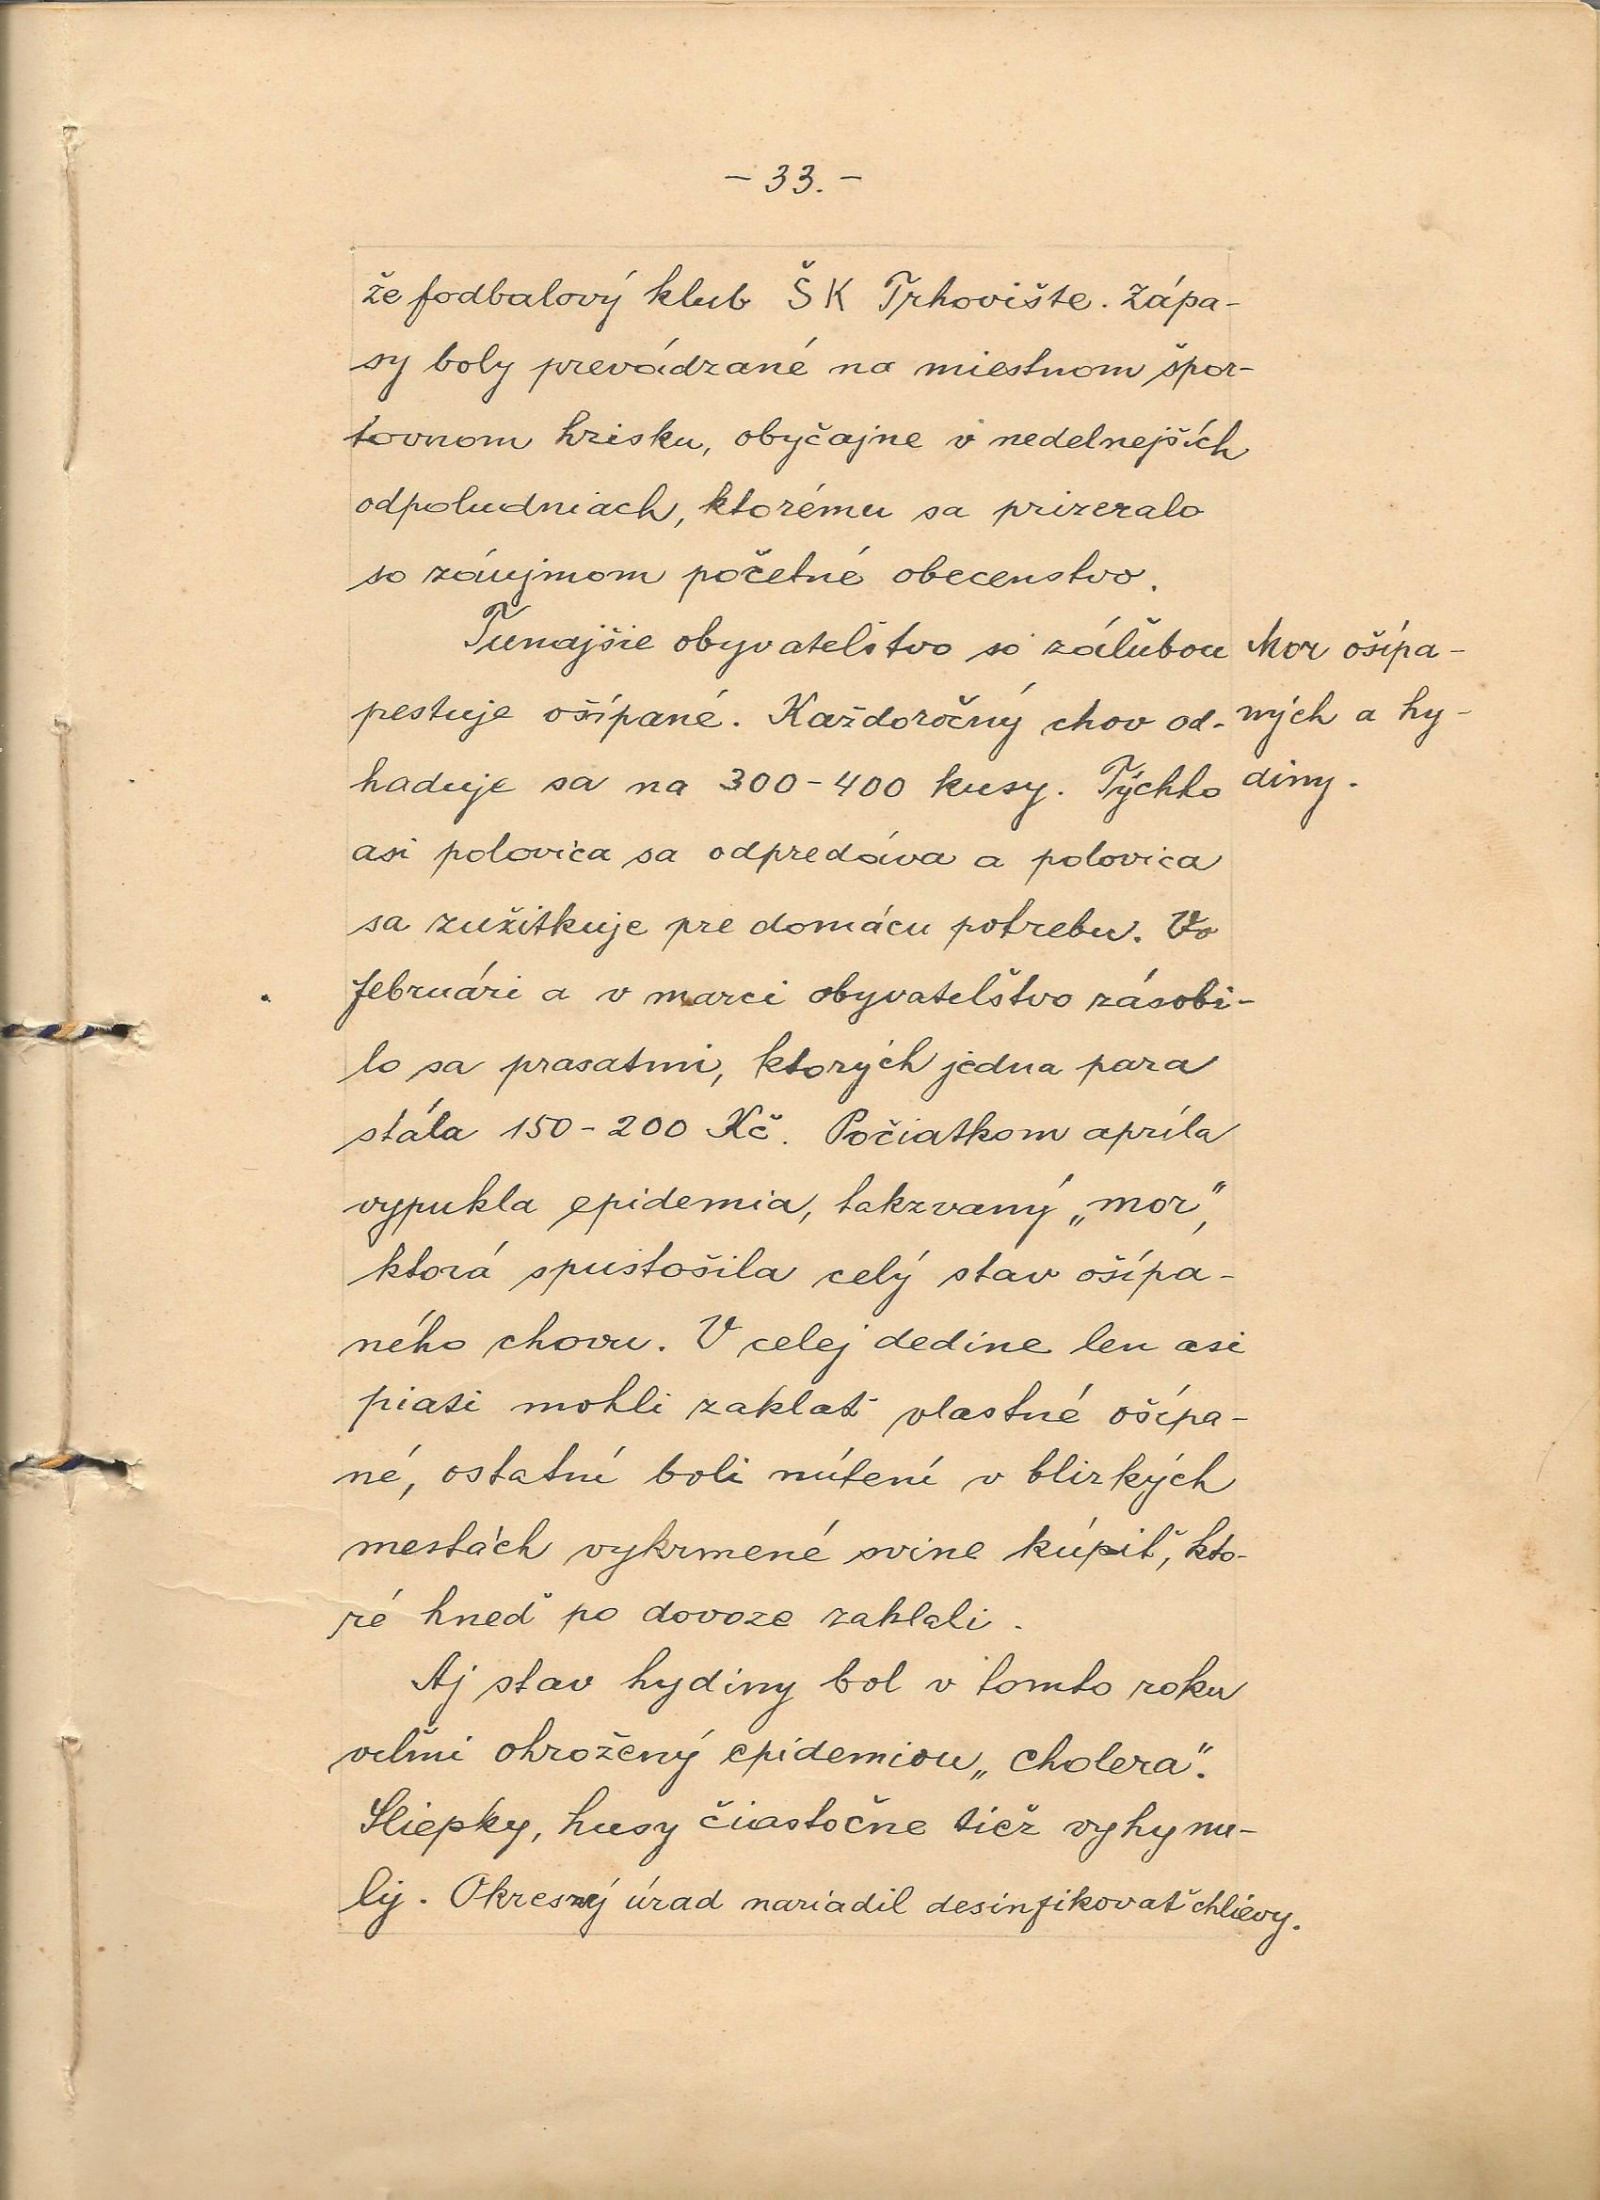 - 33. -
že fodbalový klub ŠK Trhovište. Zápa-
sy boly prevádzané na miestnom špor-
tovnom hrisku, obyčajne v nedelnejších
odpoludniach, ktorému sa prizeralo
so záujmom početné obecenstvo.
Tunajšie obyvatelštvo so záľubou
Mor ošípa-
pestuje ošípané. Každoročný chov od-
ných a hy-
haduje sa na 300-400 kusy. Týchto
diny.
asi polovica sa odpredáva a polovica
sa zužitkuje pre domácu potrebu. Vo
februári a v marci obyvatelštvo zásobi-
lo sa prasatmi, ktorých jedna para
stála 150-200 Kč. Počiatkom apríla
vypukla epidemia, takzvaný „mor",
ktorá spustošila celý stav ošípa-
ného chovu. V celej dedine len asi
piati mohli zaklať vlastné ošípa-
né, ostatní boli nútení v blízkých
mestách vykrmené svine kúpiť, kto-
ré hneď po dovoze zaklali.
Aj stav hydiny bol v tomto roku
veľmi ohrožený epidemiou „cholera".
Sliepky, husy čiastočne tiež vyhynu-
ly. Okresný úrad nariadil desinfikovať chlievy.